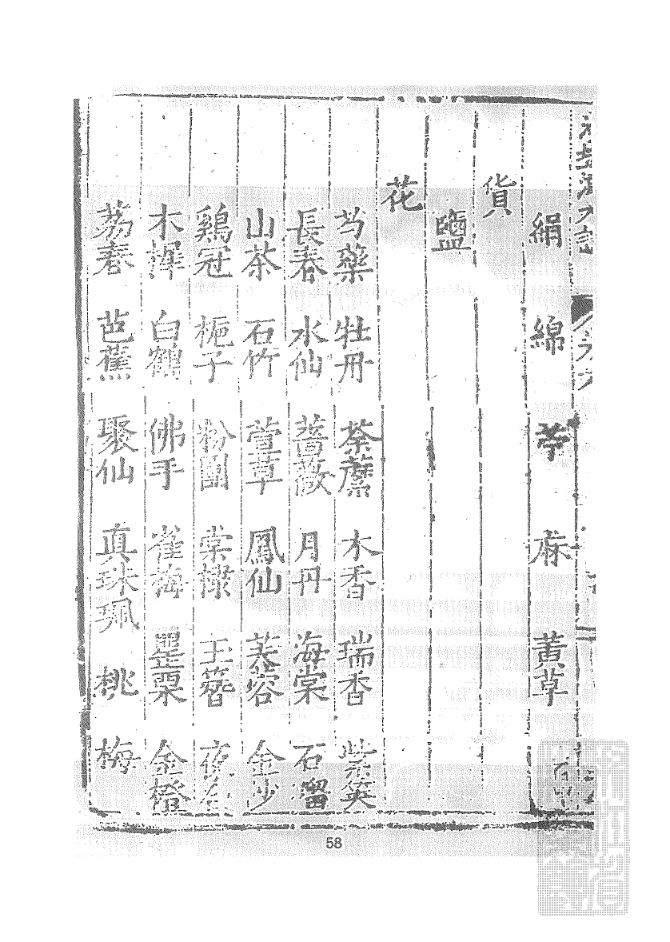 絹 綿 苧 麻 黃草
貨
鹽
花
芍藥 牡丹 荼蘼 木香 瑞香 紫英
長春 水仙 薔薇 月丹 海棠 石榴
山茶 石竹 萱草 鳳仙 芙蓉 金沙
鷄冠 梔子 粉團 棠棣 玉簪 夜合
木樨 白鶴 佛手 雀梅 罌粟 金橙
芭蕉 聚仙 真珠珮 桃 梅
58